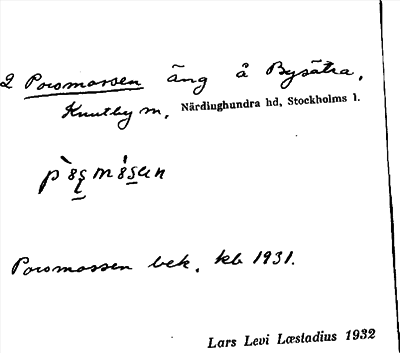 2 Porsmossen äng å Bysätra,
Knutby m, Närdinghundra hd, Stockholms l.
Porsmossen bek. kb 1931.
Lars Levi Læstadius 1932